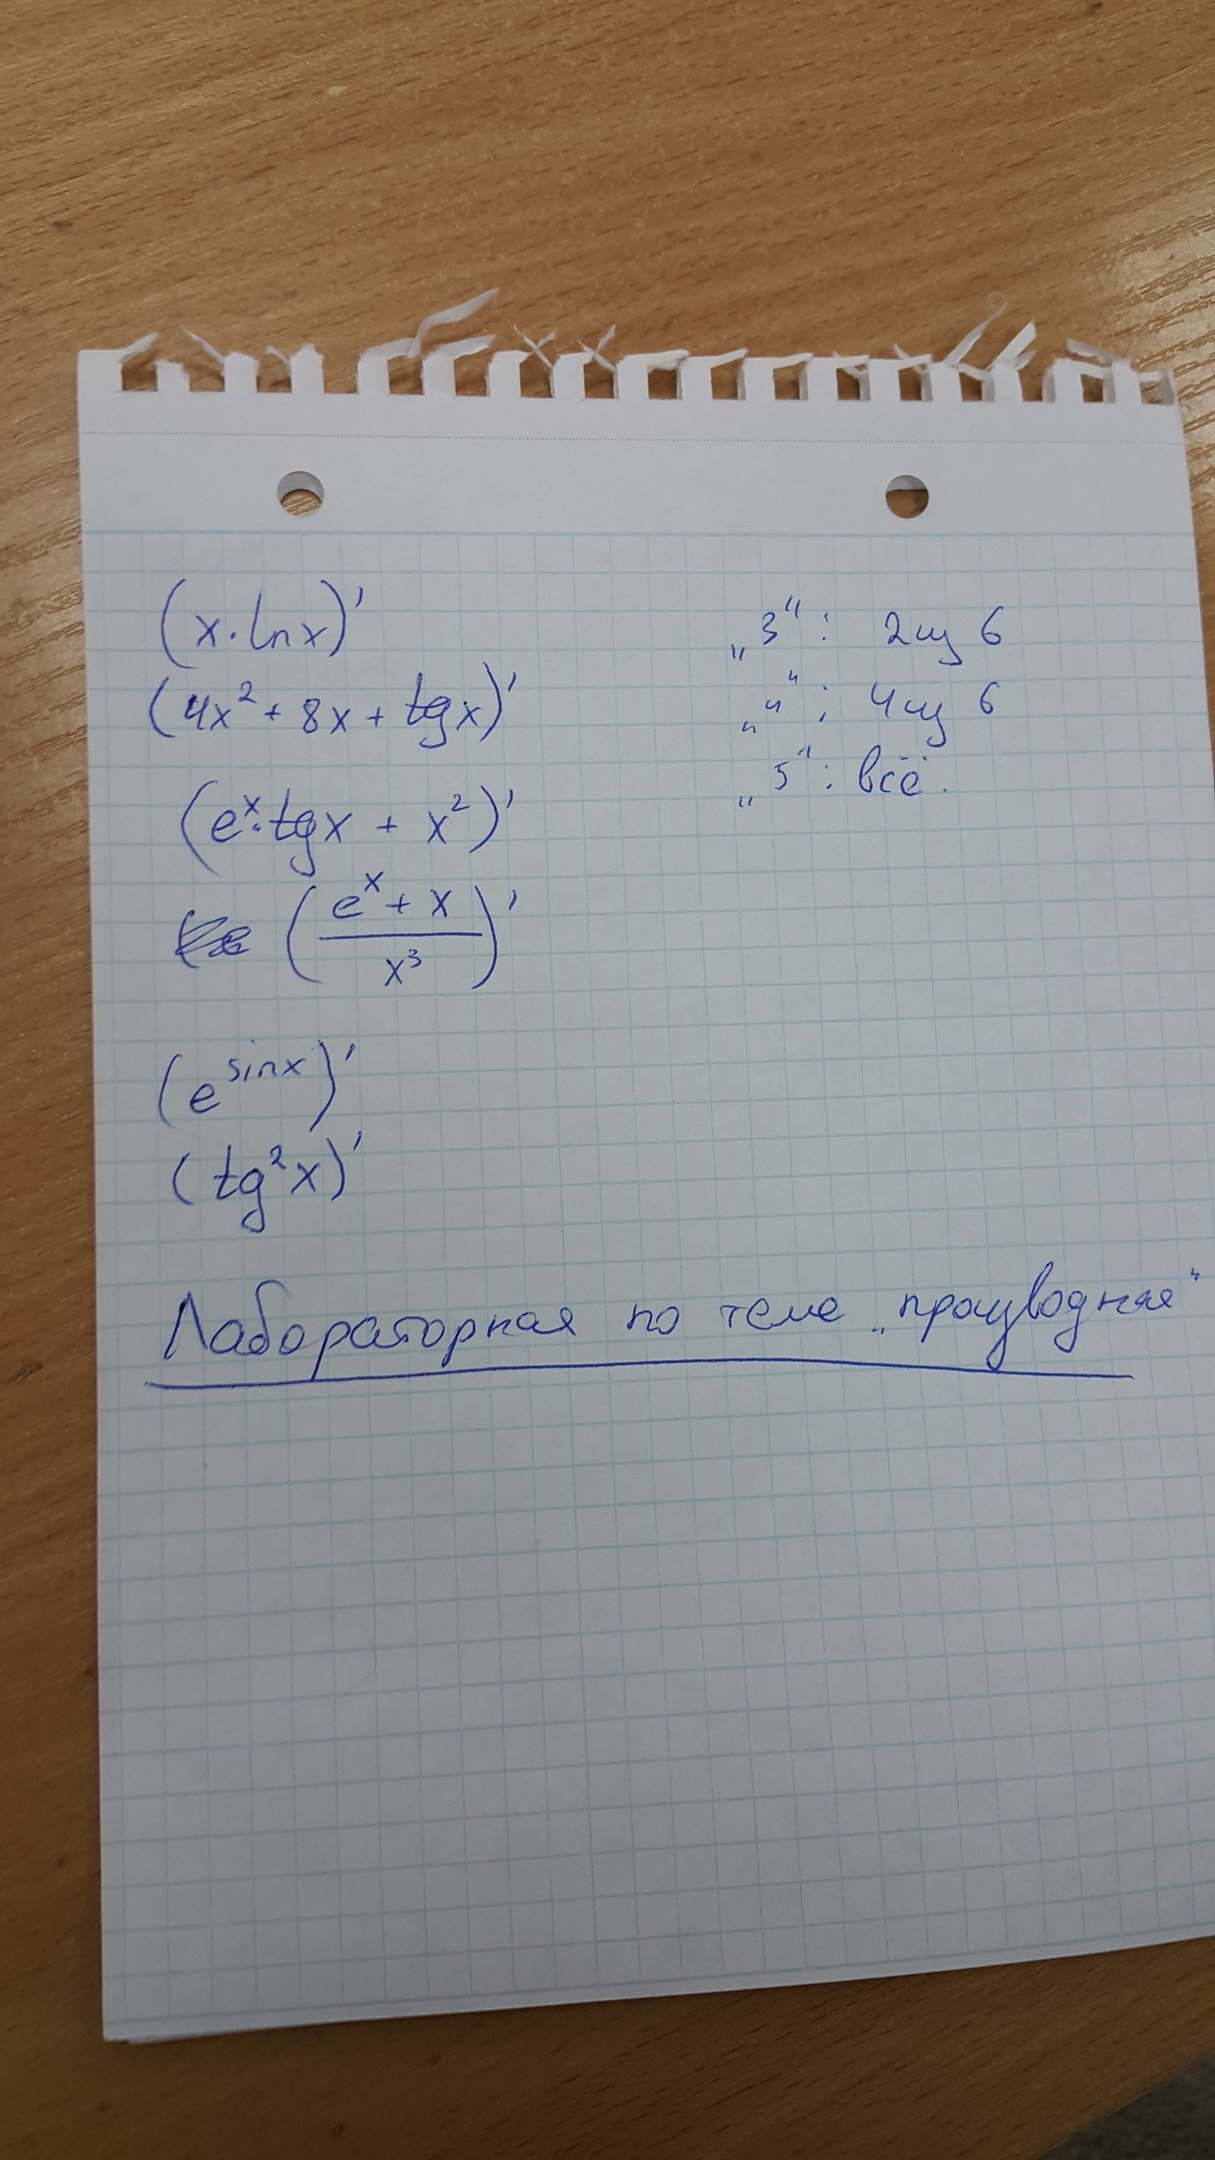 (x·lnx)'
(4x² + 8x + tgx)'
(eˣ·tgx + x²)'
((eˣ + x)/x³)'
(e^sinx)'
(tg²x)'
„3“: 2 из 6
„4“: 4 из 6
„5“: всё.
Лабораторная по теме „производная“